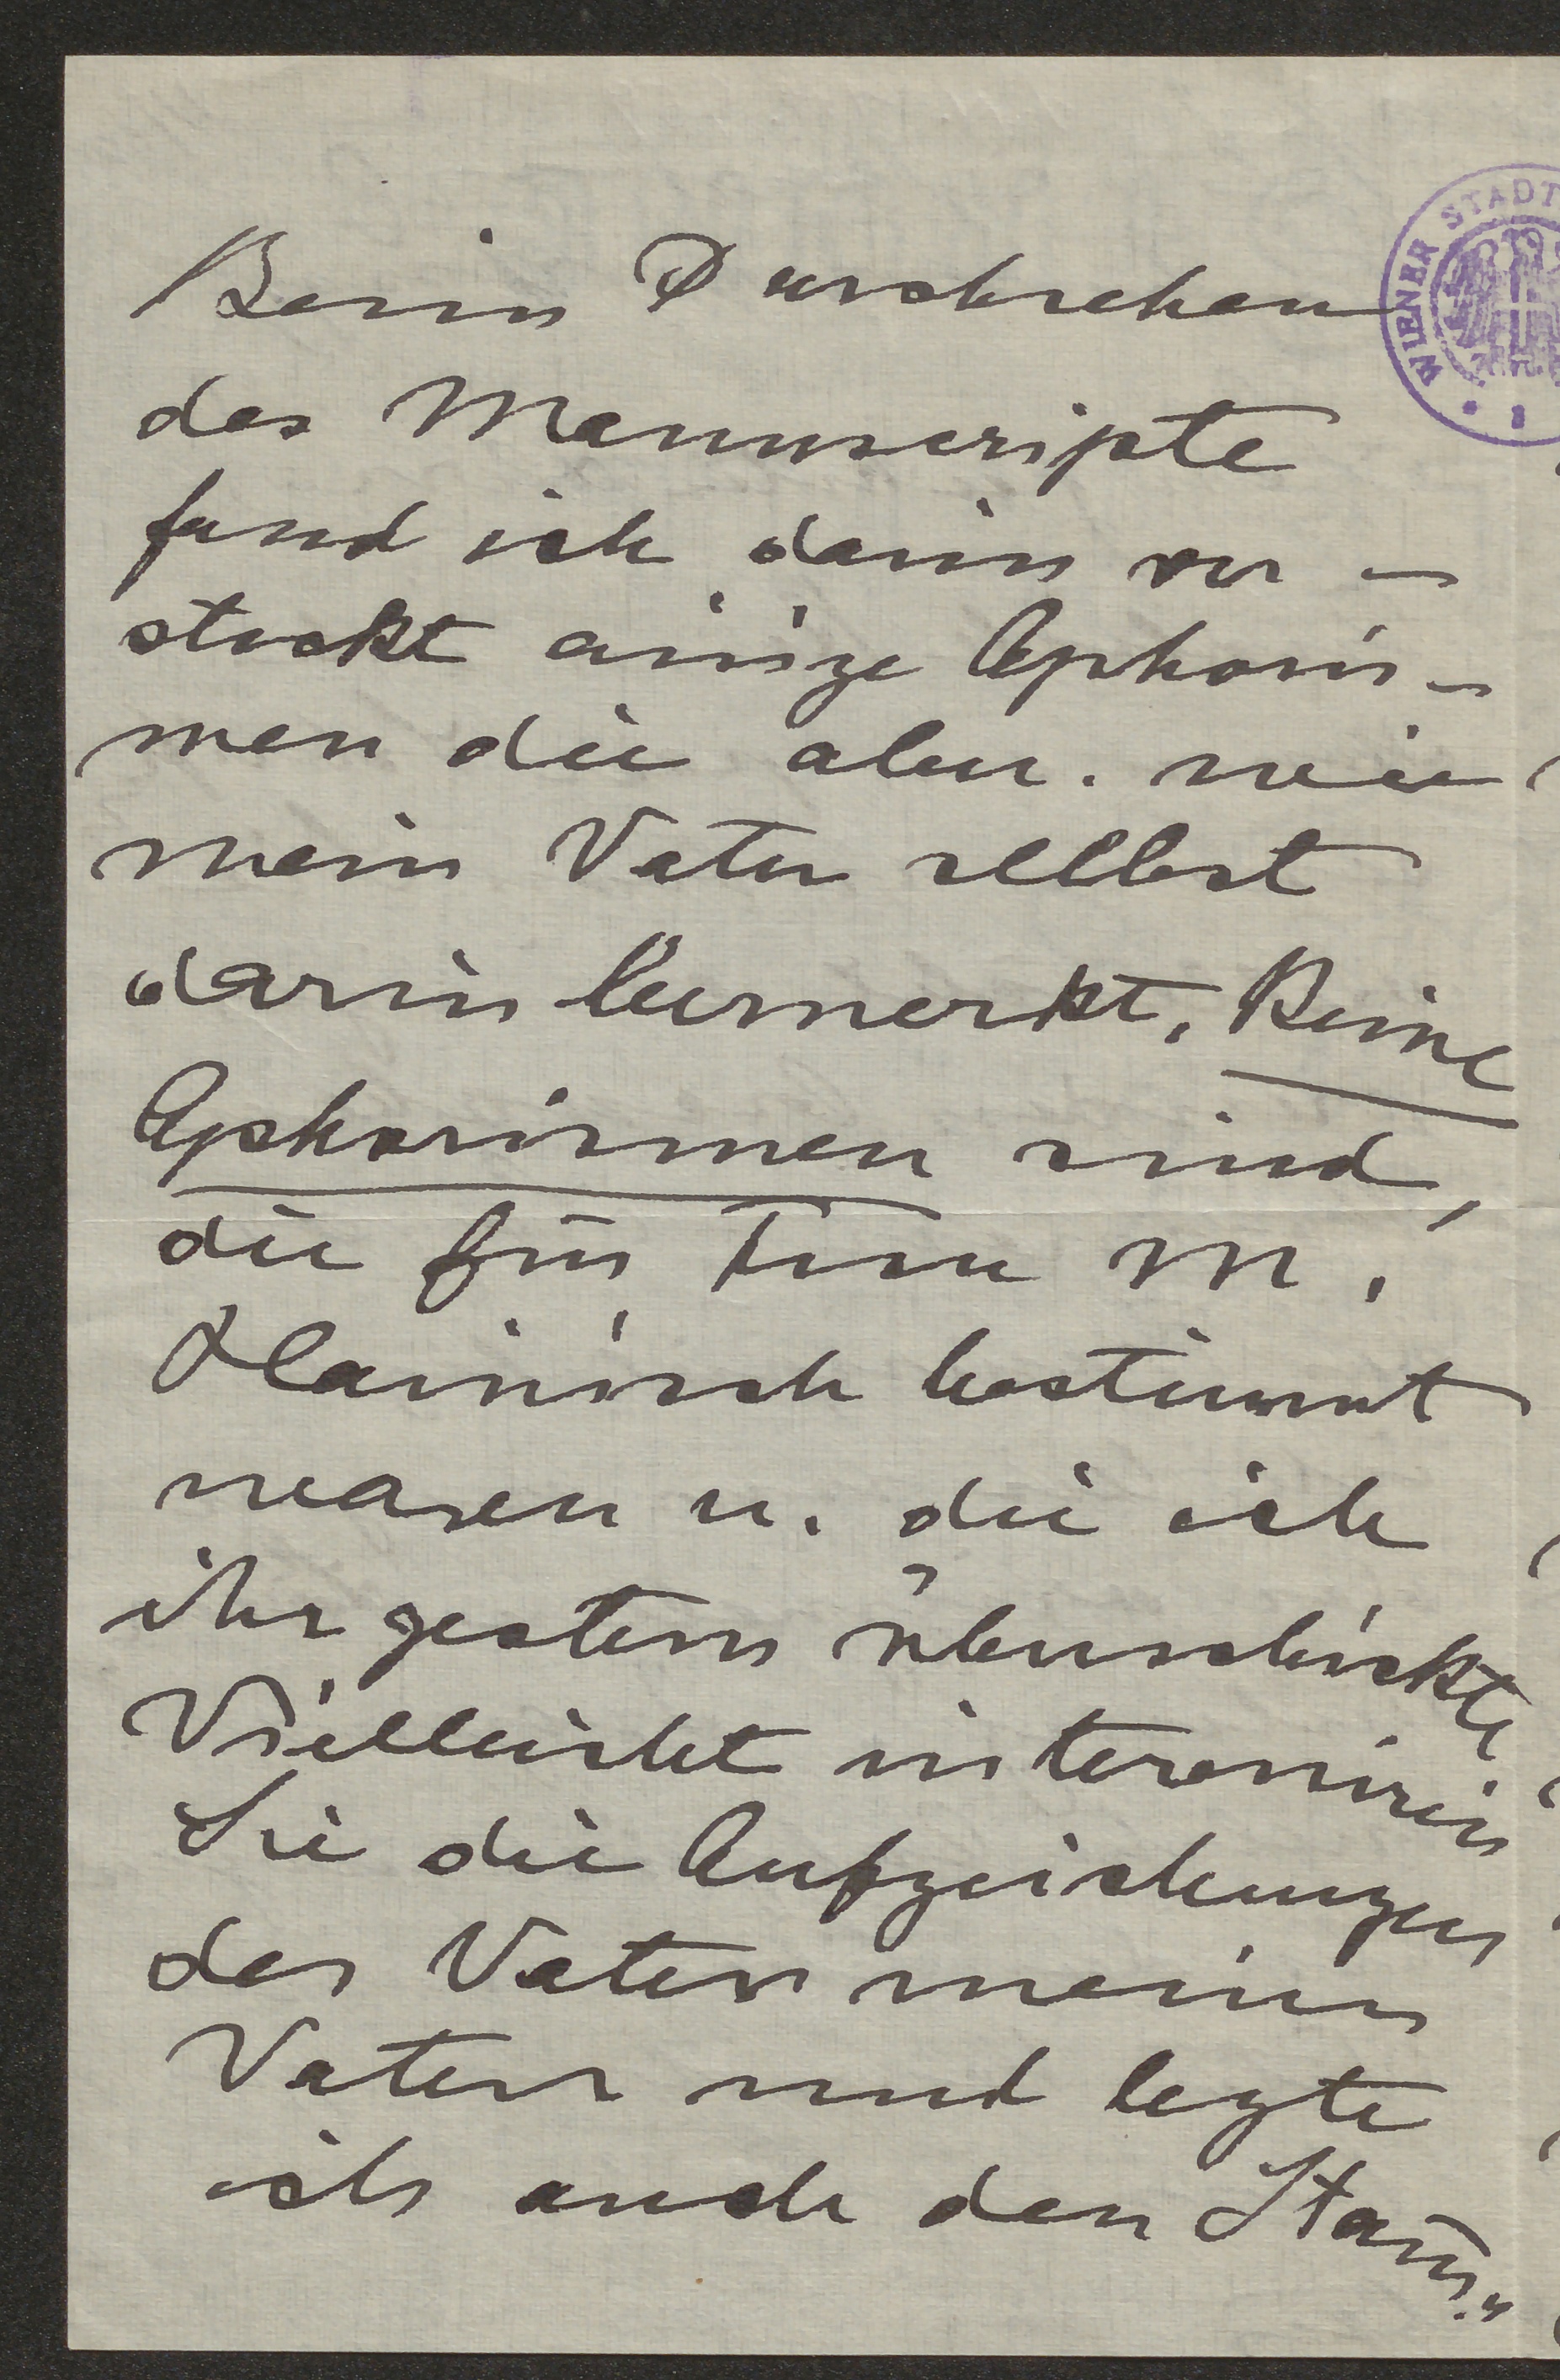 WIENER STADT
Beim Durchsehen
des Manuscripte
fand ich darin ver-
steckt einige Aphoris-
men die aber. wie
mein Vater selbst
darin bemerkt, Keine
Aphorismen sind,
die für Frau M.
Hainisch bestimmt
waren u. die ich
ihr gestern überschickte
Vielleicht interessiren
Sie die Aufzeichnungen
des Vaters meines
Vaters und legte
ich auch den Stam̄-